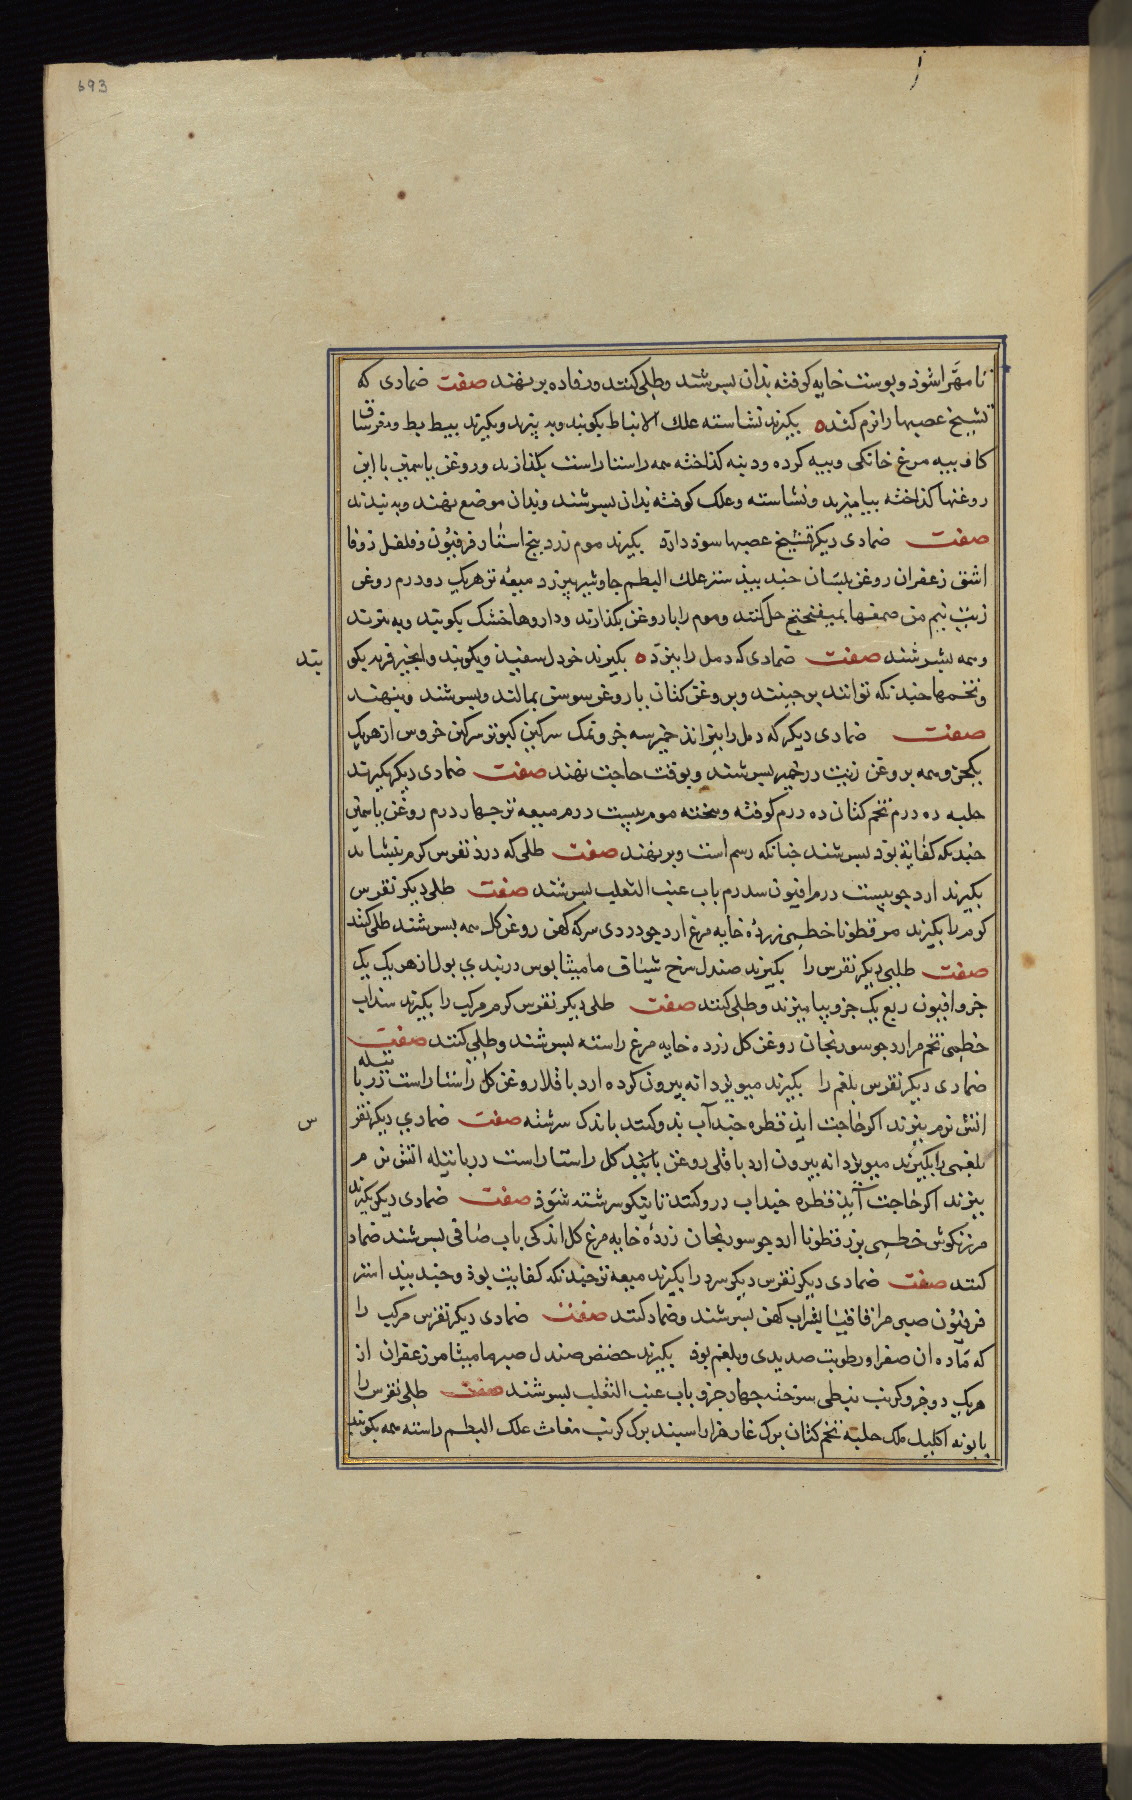 693
تا مهرا شوذ و پوست خایه کوفته بدان بسرشند و طلی کنند و رفاده برنهند صفت ضمادی که
تشنج عصبها را نرم کند ه بکیرند نشاسته علک الانباط بکوبند و به پزند و بکیرند پیه بط و مغز ساق
کاو پیه مرغ خانکی و پیه کرده و دنبه کذاخته همه راستا راست بکذازند و روغن یاسمین با این
روغنها کذاخته بیامیزند و نشاسته و علک کوفته بدان بسرشند و بدان موضع نهند و به بندند
صفت ضمادی دیکر تشنج عصبها سوذ دارد بکیرند موم زرد پنج استار فرفیون و فلفل زوفا
اشق زعفران روغن بلسان جند بیذستر علک البطم جاوشیر بیرزد میعه تر هر یک دو درم روغن
زیت نیم من صمغها بمیفختج حل کنند و موم را با روغن بکدازند و داروها خشک بکوبند و به بیزند
و همه بسرشند صفت ضمادی که دمل را بپزد ه بکیرند خردل سفید و بکوبند و انجیر فربه بکو
بند
و تخمها جندانکه توانند برجینند و بروغن کتان یا روغن سوسن بمالند و بسرشند و بنهند
صفت ضمادی دیکر که دمل را بپزاند خمیر سه جزو نمک سرکین کبوتر سرکین خروس از هر یک
یکجزو همه بروغن زیت در خمیر بسرشند و بوقت حاجت نهند صفت ضمادی دیکر بکیرند
حلبه ده درم تخم کتان ده درم کوفته و پخته موم بیست درم میعه تر جهار درم روغن یاسمین
جندانکه کفایة بوذ بسرشند جنانکه رسم است و برنهند صفت طلی که درد نقرس کرم بنشاند
بکیرند ارد جو بیست درم افیون سه درم باب عنب الثعلب بسرشند صفت طلی دیکر نقرس
کرم را بکیرند بزرقطونا خطمی زرده خایه مرغ ارد جو دردی سرکه کهن روغن کل همه بسرشند طلی کنند
صفت طلی دیکر نقرس را بکیرند صندل سرخ شیاف مامیثا بوش دربندی بول از هر یک یک
جزو افیون ربع یک جزو بیامیزند و طلی کنند صفت طلی دیکر نقرس کرم مرکب را بکیرند سذاب
خطمی تخم مر ارد جو سورنجان روغن کل زرده خایه مرغ راسته بسرشند و طلی کنند صفت
ضمادی دیکر نقرس بلغم را بکیرند مویز دانه بیرون کرده ارد باقلا روغن کل راستا راست در با
تیله
اتش نرم بپزند اکر حاجت ایذ قطره جند آب بدو کنند باندک سرشته صفت ضمادی دیکر نقر
س
بلغمی را بکیرند مویز دانه بیرون ارد باقلی روغن کل راستا راست در باتیله اتش نرم
بپزند اکر حاجت آیذ قطره جند اب درو کنند تا نیکو سرشته شوذ صفت ضمادی دیکر بکیرند
مرزنکوش خطمی بزرقطونا ارد جو سورنجان زرده خایه مرغ کل اندکی باب صافی بسرشند ضماد
کنند صفت ضمادی دیکر نقرس دیکر سرد را بکیرند میعه تر جندانکه کفایت بوذ و جند بیدستر
فرفیون صبر مر اقاقیا بشراب کهن بسرشند و ضماد کنند صفت ضمادی دیکر نقرس مرکب را
که ماده ان صفرا و رطوبت صدیدی و بلغم بوذ بکیرند حضض صندل صبر مامیثا مر زعفران از
هر یک دو جزو کرنب نبطی سوخته جهار جزو باب عنب الثعلب بسرشند صفت طلی نقرس را
بابونه اکلیل ملک حلبه تخم کتان برک غار هزار اسپند برک کرنب مغاث علک البطم راسته همه بکوبند